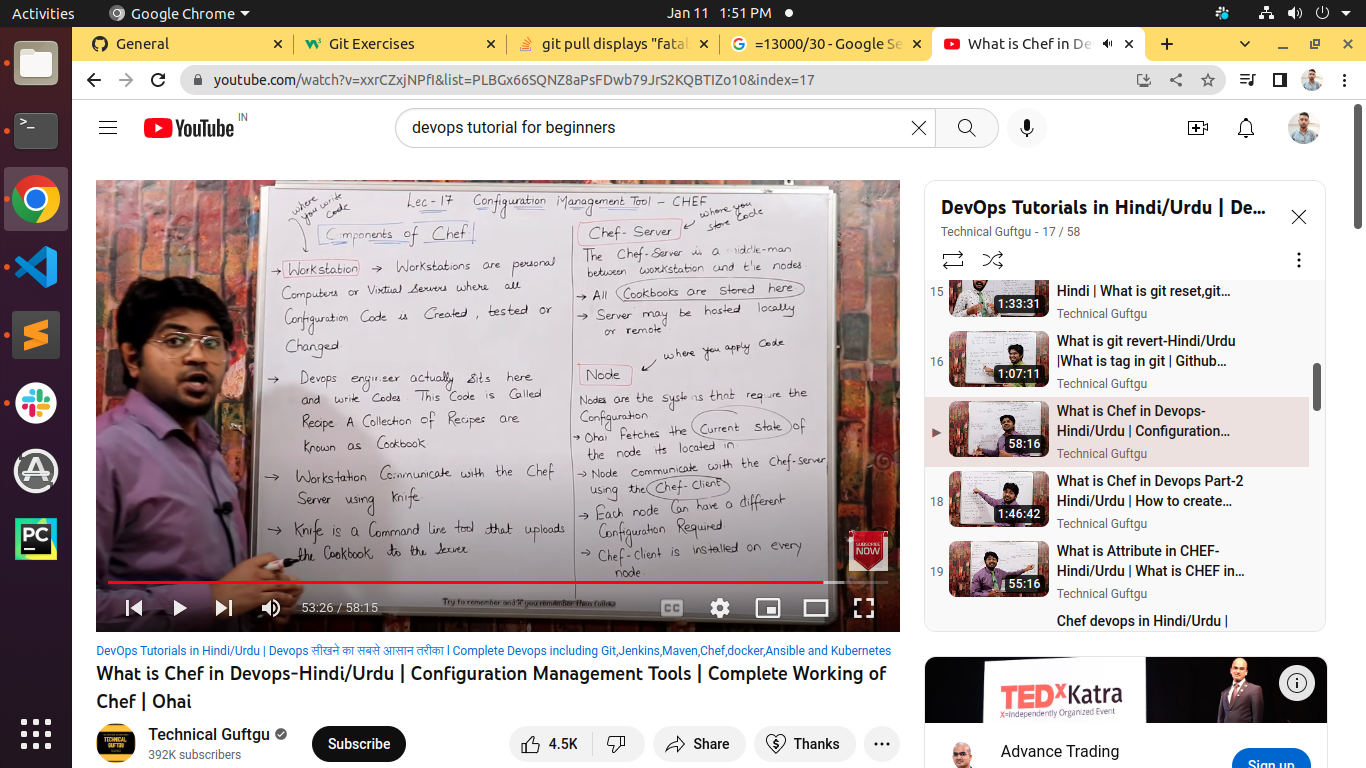 Activities
Google Chrome
Jan 11 1:51 PM
General
Git Exercises
git pull displays "fatal
=13000/30 - Google Se
What is Chef in De
youtube.com/watch?v=xxrCZxjNPfI&list=PLBGx66SQNZ8aPsFDwb79JrS2KQBTIZo10&index=17
YouTube IN
devops tutorial for beginners
where you write Code
Lec-17 Configuration Management Tool - CHEF
Components of Chef
→ Workstation → Workstations are personal
Computers or Virtual Servers where all
Configuration Code is Created, tested or
Changed
→ Devops engineer actually sits here
and write Codes. This Code is Called
Recipe A Collection of Recipes are
Known as Cookbook
→ Workstation Communicate with the Chef
Server using Knife
→ Knife is a Command line tool that uploads
the Cookbook to the Server
Chef-Server
where you store Code
The Chef-Server is a middle-man
between workstation and the nodes.
→ All Cookbooks are Stored here
→ Server may be hosted locally
or remote
where you apply Code
Node
Nodes are the systems that require the
Configuration
→ Ohai fetches the Current State of
the node its located in
→ Node Communicate with the Chef-Server
using the Chef-Client
→ Each node Can have a different
Configuration Required.
→ Chef-Client is installed on every
node.
SUBSCRIBE NOW
Try to remember and if you remember then follow
53:26 / 58:15
CC
DevOps Tutorials in Hindi/Urdu | Devops सीखने का सबसे आसान तरीका l Complete Devops including Git,Jenkins,Maven,Chef,docker,Ansible and Kubernetes
What is Chef in Devops-Hindi/Urdu | Configuration Management Tools | Complete Working of
Chef | Ohai
TECHNICAL GUFTGU
Technical Guftgu
392K subscribers
Subscribe
4.5K
Share
Thanks
DevOps Tutorials in Hindi/Urdu | De...
Technical Guftgu - 17 / 58
15
1:33:31
Hindi | What is git reset,git...
Technical Guftgu
16
1:07:11
What is git revert-Hindi/Urdu
|What is tag in git | Github...
Technical Guftgu
58:16
What is Chef in Devops-
Hindi/Urdu | Configuration...
Technical Guftgu
18
1:46:42
What is Chef in Devops Part-2
Hindi/Urdu | How to create...
Technical Guftgu
19
55:16
What is Attribute in CHEF-
Hindi/Urdu | What is CHEF in...
Technical Guftgu
Chef devops in Hindi/Urdu |
TEDxKatra
x=independently Organized Event
Advance Trading
Sign up
PC